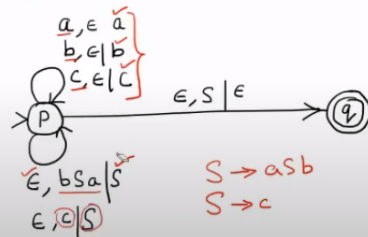 a, ε a
b, ε | b
c, ε | c
ε, S | ε
P
q
ε, bSa | S
ε, c | S
S → aSb
S → c